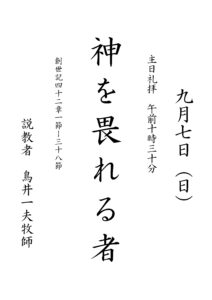 九月七日（日）
主日礼拝　午前十時三十分
神を畏れる者
創世記四十二章一節ー三十八節
説教者　鳥井一夫牧師